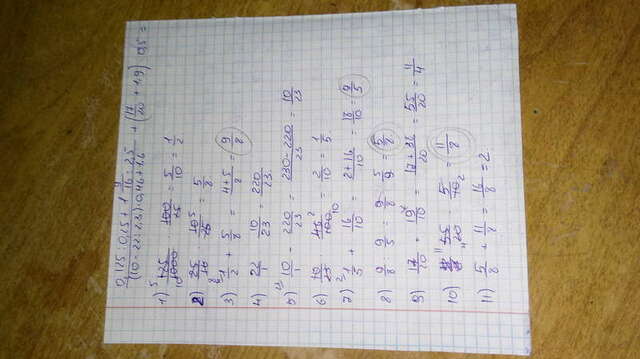 0,125 : 0,25 + 1 9/16 : 2,5 / (10 - 22 : 2,3) · 0,46 + 1,6 + (17/20 + 1,9) · 0,5 =
1) 125/1000 · 100/25 = 5/10 = 1/2
2) 25/16 · 10/25 = 5/8
3) 1/2 + 5/8 = 4+5/8 = 9/8
4) 22/1 · 10/23 = 220/23
5) 10/1 - 220/23 = 230-220/23 = 10/23
6) 10/23 · 46/100 = 2/10 = 1/5
7) 1/5 + 16/10 = 2+16/10 = 18/10 = 9/5
8) 9/8 : 9/5 = 9/8 · 5/9 = 5/8
9) 17/20 + 19/10 = 17+38/20 = 55/20 = 11/4
10) 55/20 · 5/10 = 11/8
11) 5/8 + 11/8 = 16/8 = 2